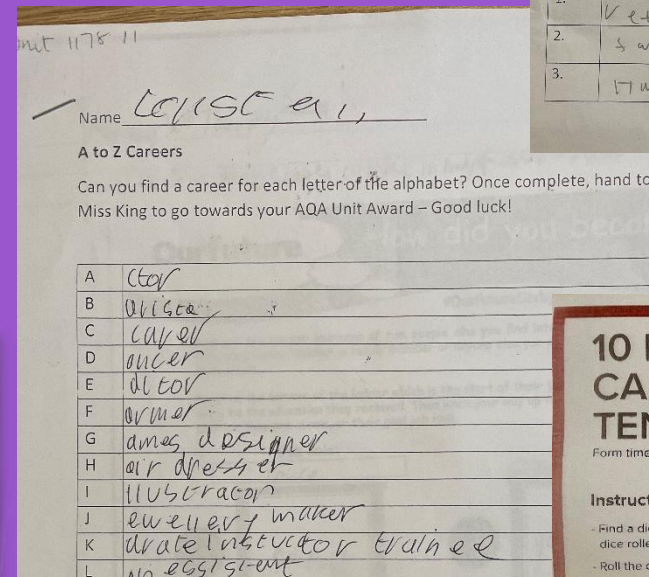 Unit 1178 11
Name
A to Z Careers
Can you find a career for each letter of the alphabet? Once complete, hand to
Miss King to go towards your AQA Unit Award – Good luck!
A ctor
B arista
C carer
D ancer
E ditor
F armer
G ames designer
H air dresser
I llustrator
J ewellery maker
K
L
1.
2.
3.
10
CA
TEN
Form time
Instruct
- Find a di
dice rolle
- Roll the